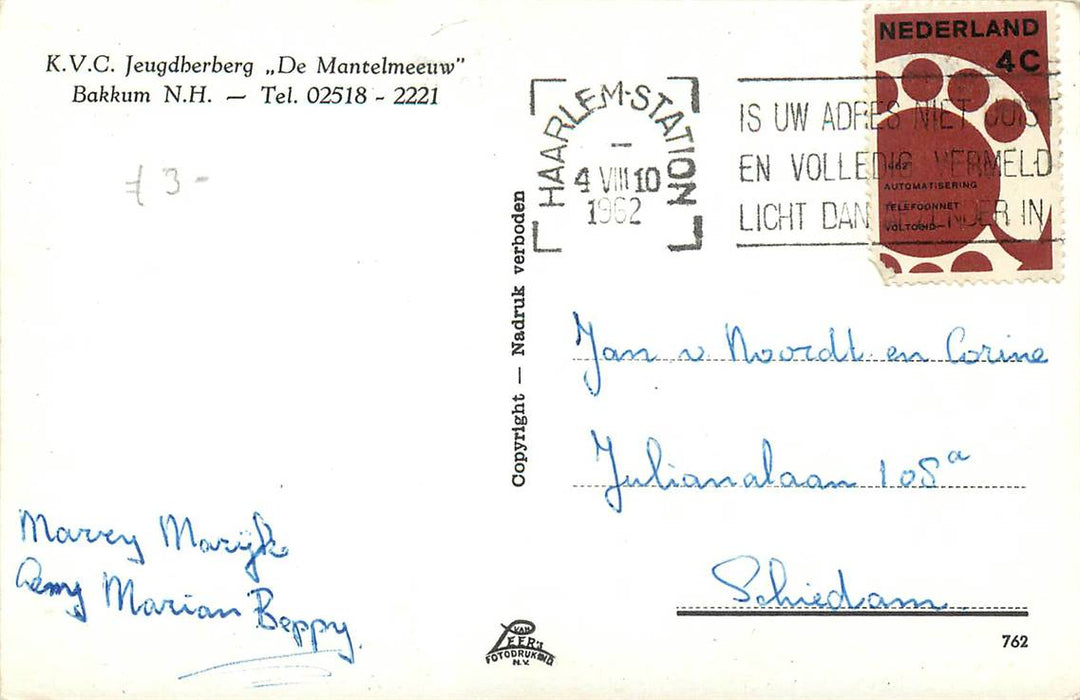 K.V.C. Jeugdherberg „De Mantelmeeuw”
Bakkum N.H. — Tel. 02518 - 2221
3 -
HAARLEM-STATION
4 VIII 10
1962
IS UW ADRES NIET JUIST
EN VOLLEDIG VERMELD
LICHT DAN AFZENDER IN
NEDERLAND
4C
1962
AUTOMATISERING
TELEFOONNET
VOLTOOID
Copyright — Nadruk verboden
Jan v. Noordt en Corine
Julianalaan 108a
Schiedam.
Marijke
Marian Beppy
VAN
LEER'S
FOTODRUKIND
N.V.
762